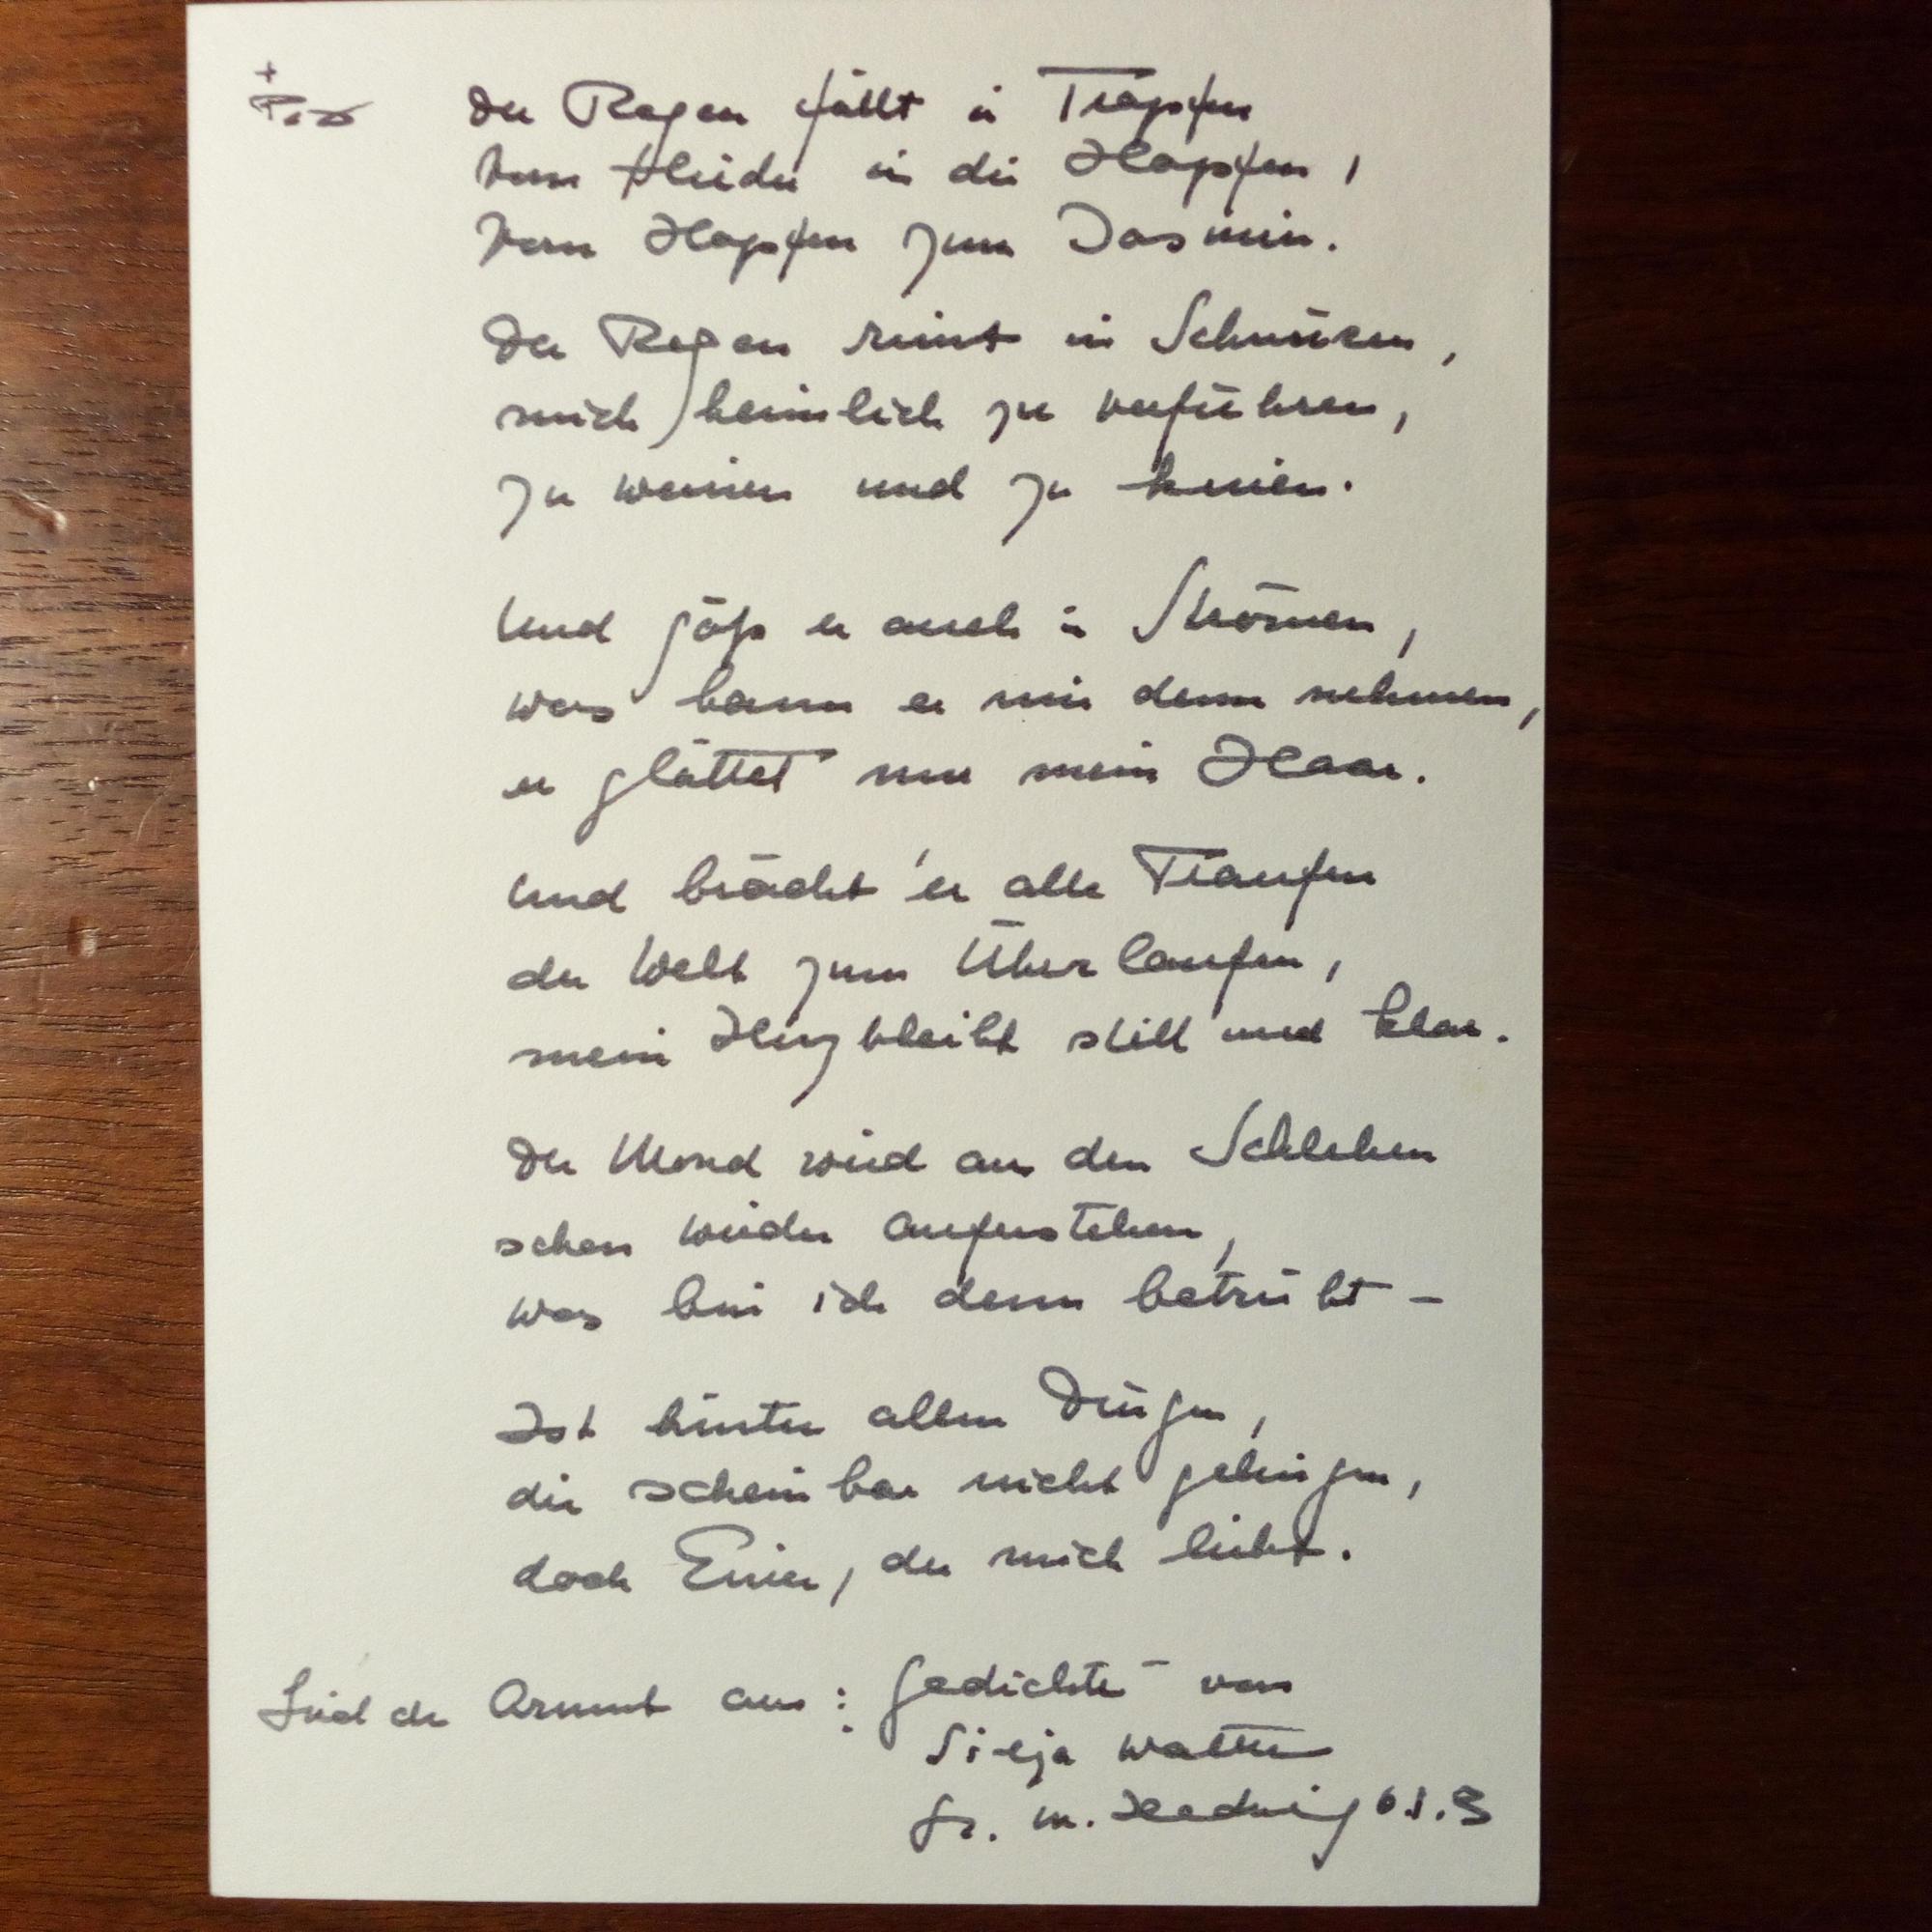 +
Pax
Der Regen fällt in Tropfen
vom Flieder in die Hopfen,
vom Hopfen zum Jasmin.
Der Regen rinnt in Schnüren,
mich heimlich zu verführen,
zu weinen und zu knien.
Und göß er auch in Strömen,
was kann er mir denn nehmen,
er glättet nur mein Haar.
Und brächt' er alle Traufen
der Welt zum Überlaufen,
mein Herz bleibt still und klar.
Der Mond wird an den Schlehen
schon wieder auferstehen,
was bin ich denn betrübt –
Ist hinter allen Dingen,
die scheinbar nicht gelingen,
doch Einer, der mich liebt.
Lied der Armut aus: Gedichte von
Silja Walter
Sr. M. Hedwig